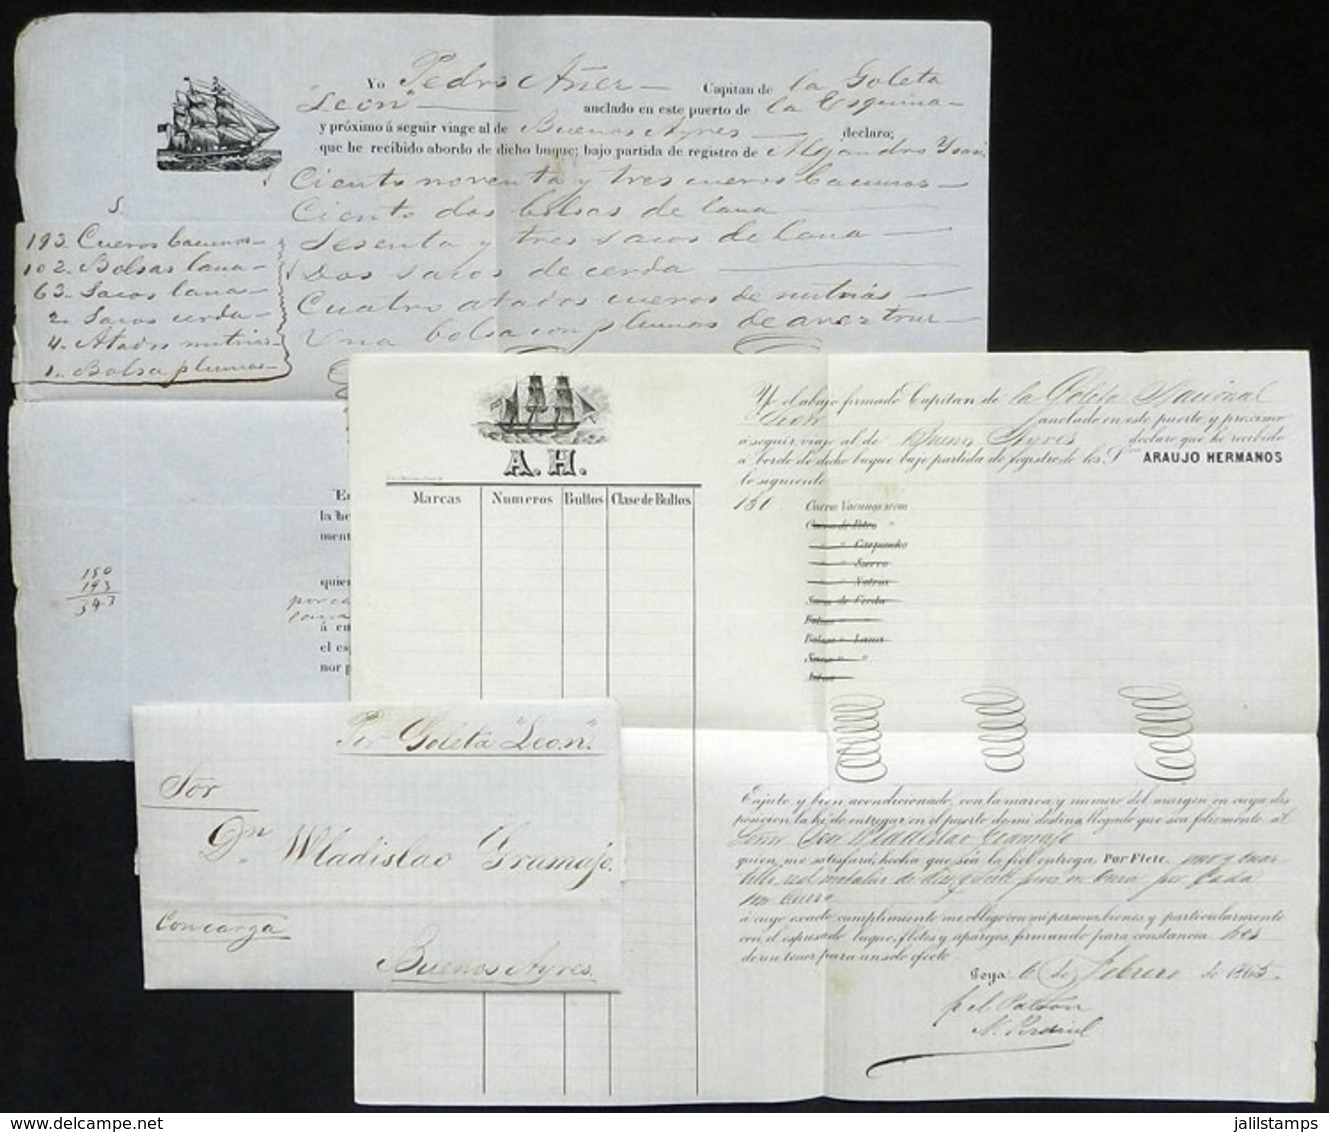 Yo Pedro Añer Capitan de la Goleta
"Leon" anclado en este puerto de la Esquina
y próximo á seguir viage al de Buenos Ayres declaro;
que he recibido abordo de dicho buque; bajo partida de registro de Alejandro
Ciento noventa y tres cueros bacunos
Ciento dos bolsas de lana
Sesenta y tres sacos de lana
Dos sacos de cerda
Cuatro atados cueros de nutrias
Una bolsa con plumas de avestruz
193. Cueros bacunos
102. Bolsas lana
63. Sacos lana
2. Sacos cerda
4. Atados nutrias
1. Bolsa plumas
150
193
343
la he
ment
quien
á cu
el es
nor p
A. H.
Marcas Numeros Bultos Clase de Bultos
Yo el abajo firmado Capitan de la Goleta Nacional
"Leon" anclado en este puerto y proximo
á seguir viaje al de Buenos Ayres declaro que he recibido
á bordo de dicho buque bajo partida de registro de los Sres ARAUJO HERMANOS
lo siguiente
150 Cueros Vacunos secos
Cueros de Potro "
" " Carpincho
" " Nutria
Sacos de Cerda
Bolsas " Lana
Sacos " "
Enjuto y bien acondicionado, con la marca y numero del margen en cuya dis
posicion la he de entregar en el puerto de mi destino, llegado que sea felizmente al
Señor Don Wladislao Gramajo
quien me satisfará, hecha que sea la fiel entrega, Por Flete, uno y cuar-
tillo real metalico de diez y siete pesos en onza por cada
un cuero
á cuyo exacto cumplimiento me obligo con mi persona, bienes y particularmente
con el espresado buque, fletes y aparejos, firmando para constancia tres
de un tenor para un solo efecto.
Goya 6 de Febrero de 1865
p el Patron
Por Goleta "Leon".
Sor
Dn Wladislao Gramajo.
Con carga
Buenos Ayres.
jalilstamps